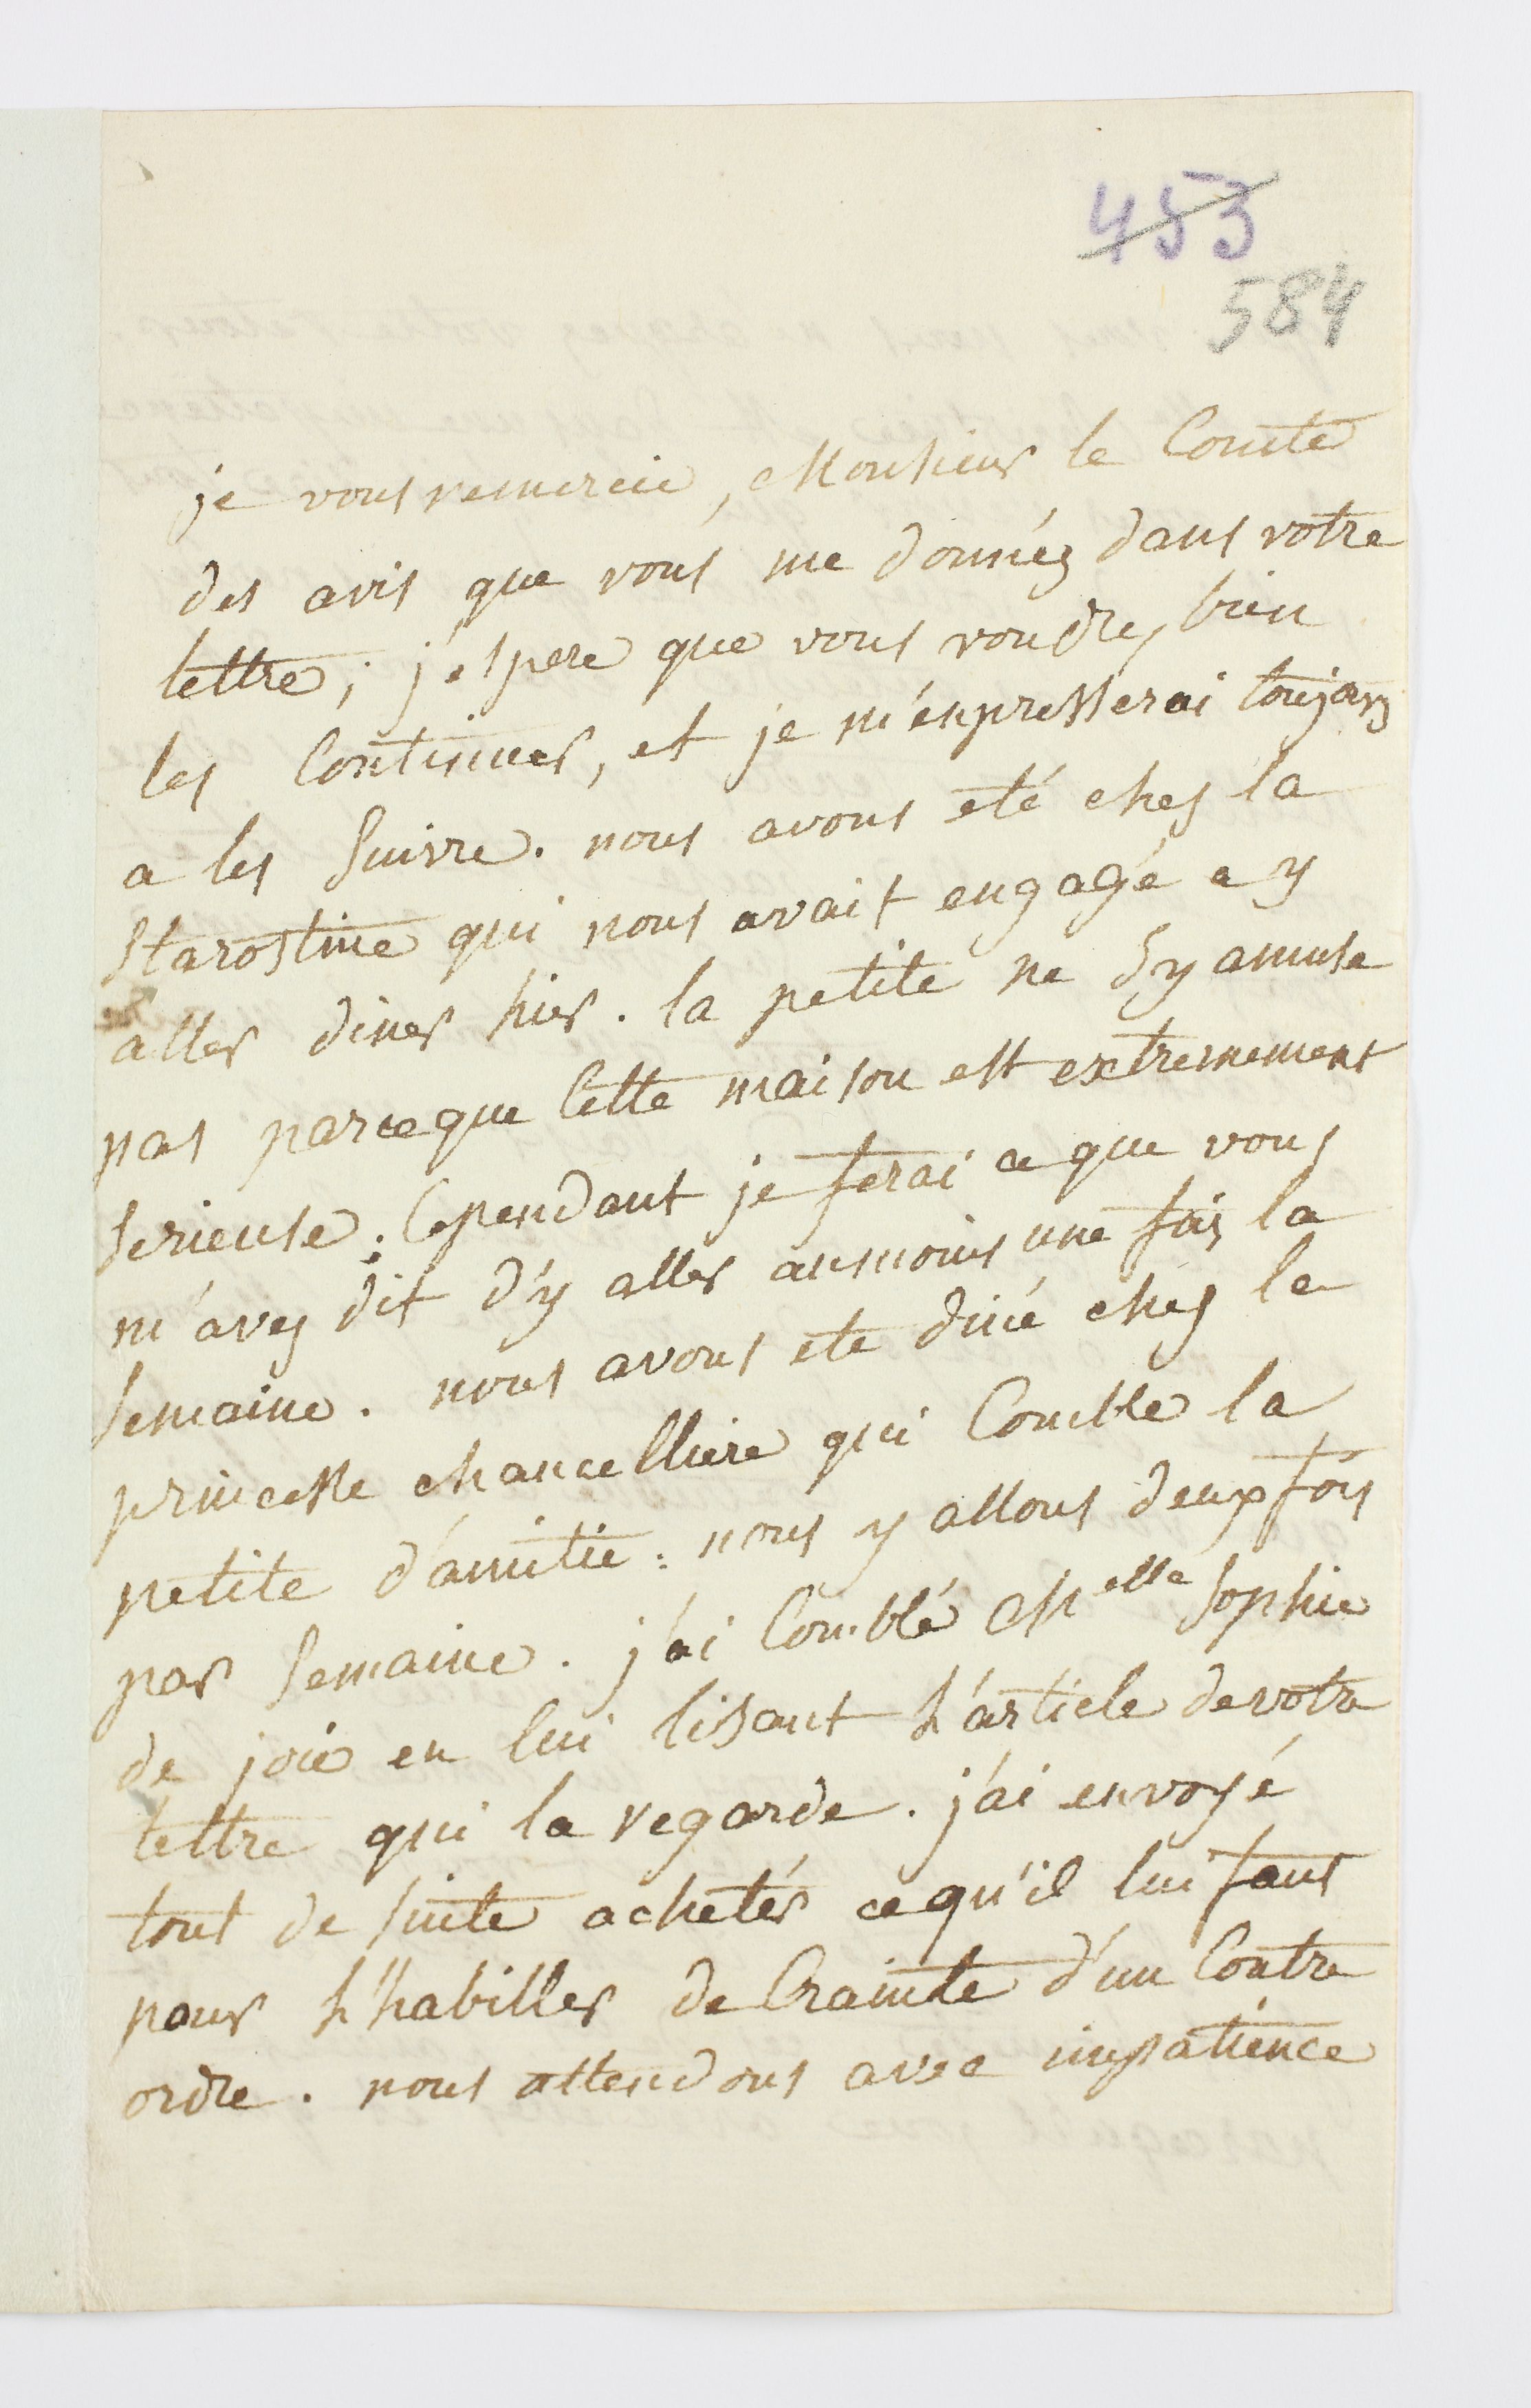 453
584
je vous remercie, Monsieur le Comte
des avis que vous me donnéz dans votre
lettre; j'espere que vous voudrez bien
les Continuer, et je m'enpresserai toujours
a les Suivre. nous avons eté chez la
Starostine qui nous avait engagé a y
aller diner hier. la petite ne S'y amuse
pas parceque Cette maison est extremement
Serieuse. Cependant je ferai ce que vous
m'avez dit d'y aller aumoins une fois la
Semaine. nous avons ete diné chez la
princesse chancelliere qui Comble la
petite d'amitié. nous y allons deux fois
par Semaine. j'ai Comblé Melle Sophie
de joie en lui lisant L'article de votre
lettre qui la regarde. j'ai envoyé
tout de Suite achetér ce qu'il lui faut
pour L'habiller de Crainte d'un Contre
ordre. nous attendons avec impatience